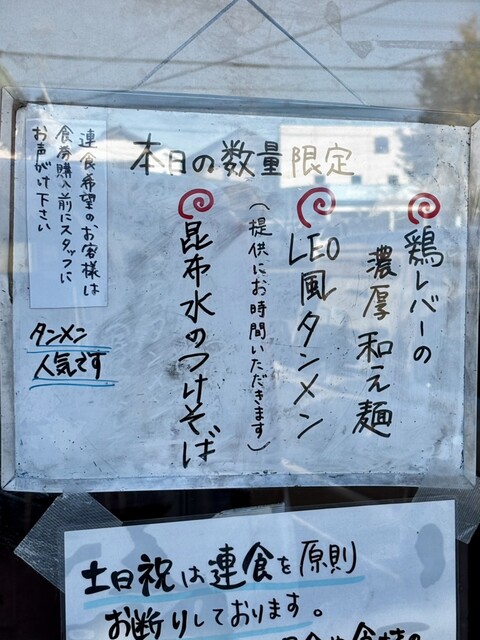 本日の数量限定
鶏レバーの
濃厚和え麺
LEO風タンメン
(提供にお時間いただきます)
昆布水のつけそば
連食希望のお客様は
食券購入前にスタッフに
お声がけ下さい
タンメン
人気です
土日祝は連食を原則
お断りしております。